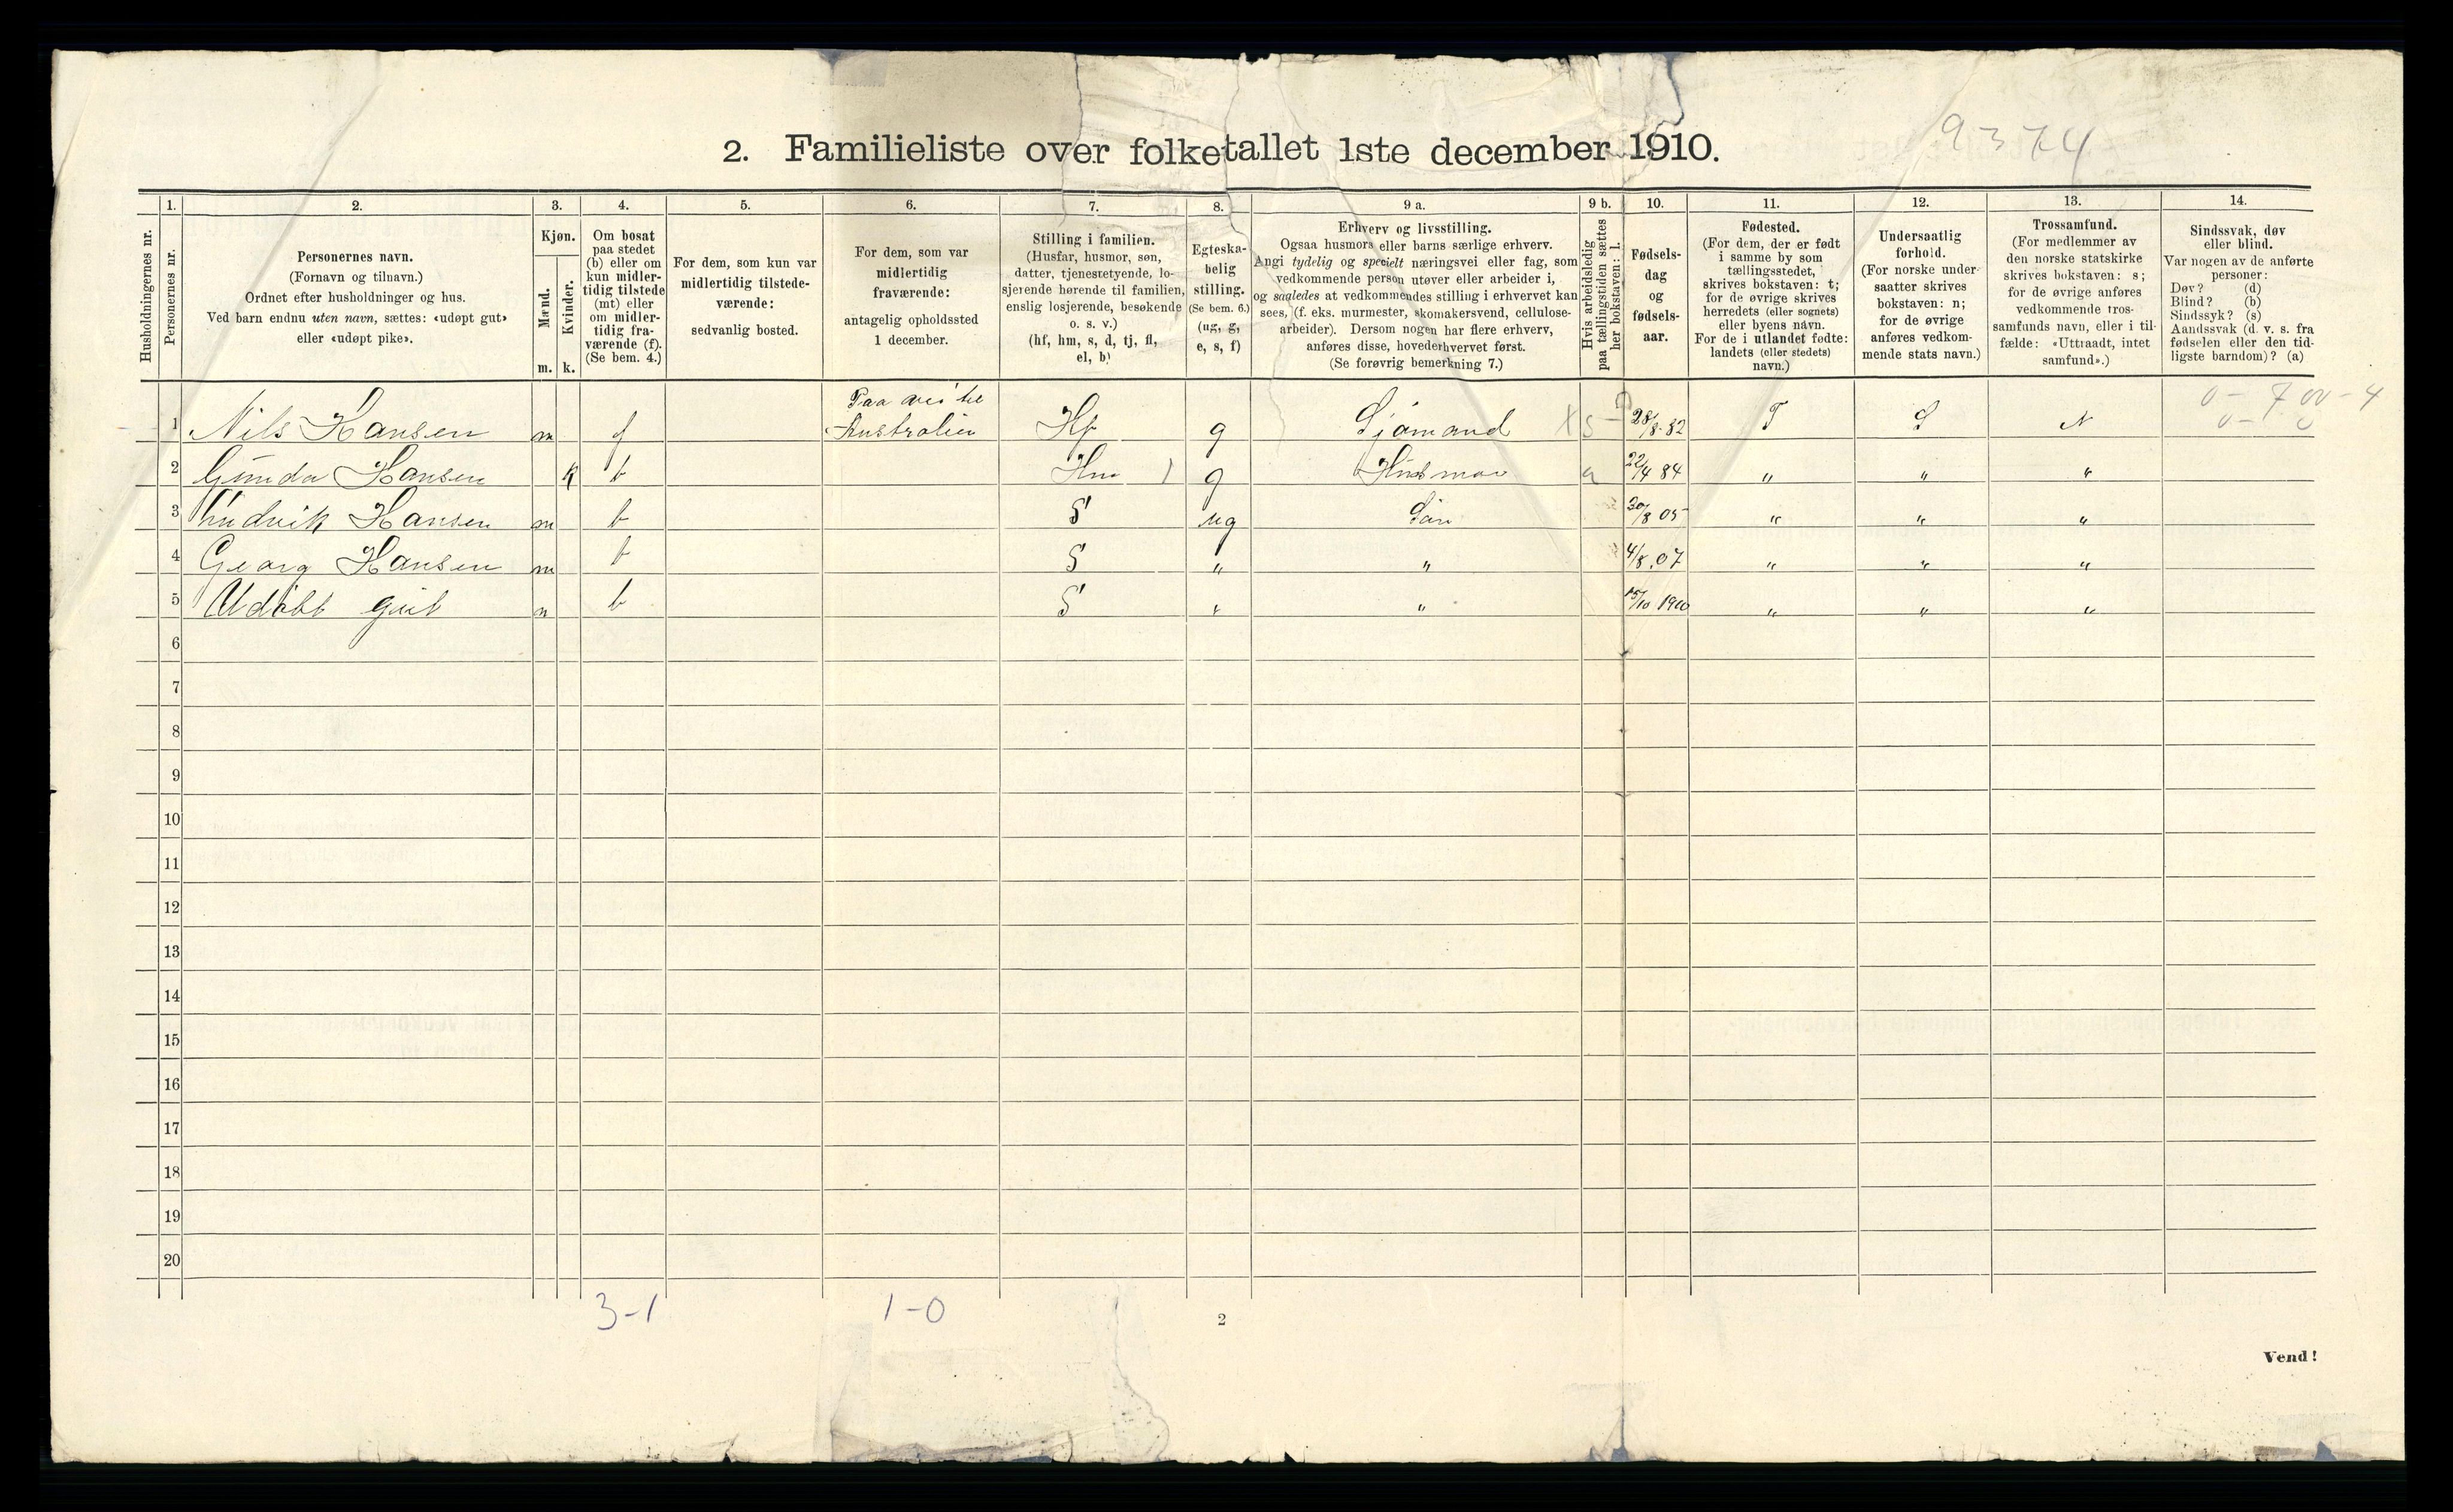 9374
2. Familieliste over folketallet 1ste december 1910.
Husholdningernes nr.
1.
Personernes nr.
2.
Personernes navn.
(Fornavn og tilnavn.)
Ordnet efter husholdninger og hus.
Ved barn endnu uten navn, sættes: «udøpt gut»
eller «udøpt pike».
3.
Kjøn.
Mænd.
Kvinder.
m. k.
4.
Om bosat
paa stedet
(b) eller om
kun midler-
tidig tilstede
(mt) eller
om midler-
tidig fra-
værende (f).
(Se bem. 4.)
5.
For dem, som kun var
midlertidig tilstede-
værende:
sedvanlig bosted.
6.
For dem, som var
midlertidig
fraværende:
antagelig opholdssted
1 december.
7.
Stilling i familien.
(Husfar, husmor, søn,
datter, tjenestetyende, lo-
sjerende hørende til familien,
enslig losjerende, besøkende
o. s. v.)
(hf, hm, s, d, tj, fl,
el, b)
8.
Egteska-
belig
stilling.
(Se bem. 6.)
(ug, g,
e, s, f)
9 a.
Erhverv og livsstilling.
Ogsaa husmors eller barns særlige erhverv.
Angi tydelig og specielt næringsvei eller fag, som
vedkommende person utøver eller arbeider i,
og saaledes at vedkommendes stilling i erhvervet kan
sees, (f. eks. murmester, skomakersvend, cellulose-
arbeider). Dersom nogen har flere erhverv,
anføres disse, hovederhvervet først.
(Se forøvrig bemerkning 7.)
9 b.
Hvis arbeidsledig
paa tællingstiden sættes
her bokstaven: l.
10.
Fødsels-
dag
og
fødsels-
aar.
11.
Fødested.
(For dem, der er født
i samme by som
tællingsstedet,
skrives bokstaven: t;
for de øvrige skrives
herredets (eller sognets)
eller byens navn.
For de i utlandet fødte:
landets (eller stedets)
navn.)
12.
Undersaatlig
forhold.
(For norske under-
saatter skrives
bokstaven: n;
for de øvrige
anføres vedkom-
mende stats navn.)
13.
Trossamfund.
(For medlemmer av
den norske statskirke
skrives bokstaven: s;
for de øvrige anføres
vedkommende tros-
samfunds navn, eller i til-
fælde: «Uttraadt, intet
samfund».)
14.
Sindssvak, døv
eller blind.
Var nogen av de anførte
personer:
Døv? (d)
Blind? (b)
Sindssyk? (s)
Aandssvak (d. v. s. fra
fødselen eller den tid-
ligste barndom)? (a)
1 Nils Hansen m f Paa vei til Australien Hf g Sjömand X s 28/8-82 T S N
2 Gunda Hansen k b Hm g Husmor 22/4 84 " " "
3 Ludvik Hansen m b S ug Sön 30/8 05 " " "
4 Georg Hansen m b S " " 4/8.07 " " "
5 Udöbt gut m b S " " 15/10 1910 " " "
6
7
8
9
10
11
12
13
14
15
16
17
18
19
20
3-1 1-0
2
Vend!